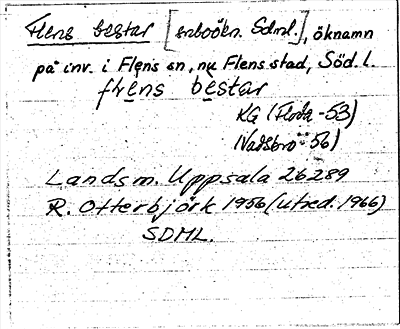 Flens bestar [inboökn. Sdml.], öknamn
på inv. i Flens sn, nu Flens stad, Söd. l.
flens bestar
KG (Floda -53)
(Vadsbro 56)
Landsm. Uppsala 26289
R. Otterbjörk 1956 (utred. 1966)
SDML.